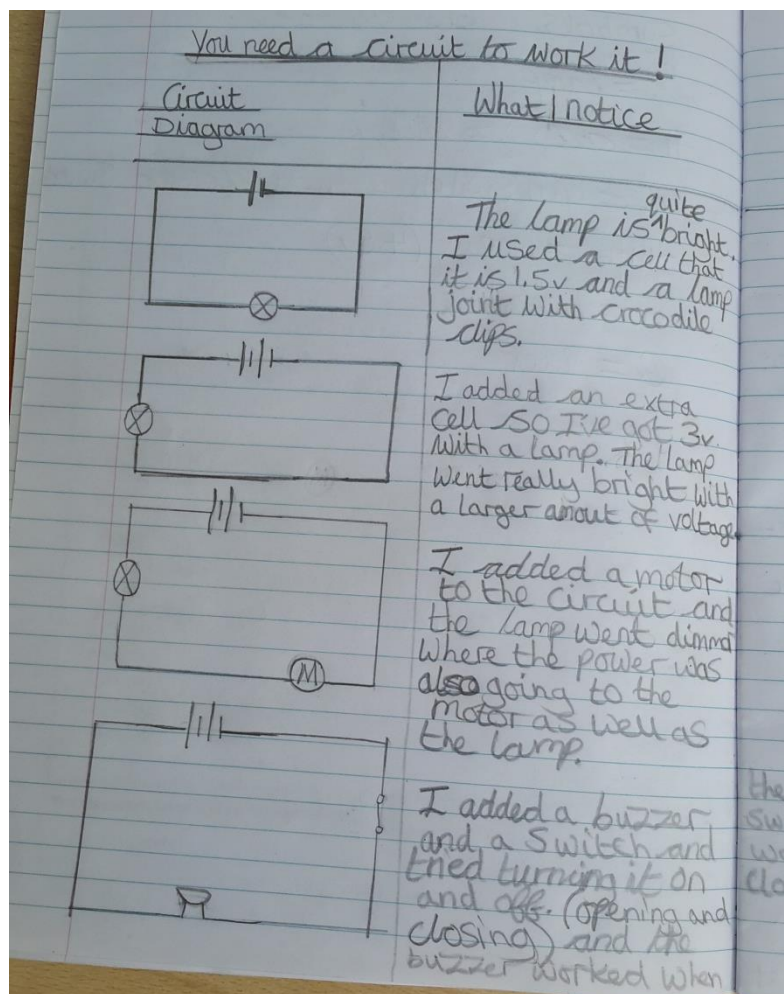 You need a circuit to work it!
Circuit
Diagram
What I notice
quite
The lamp is ^ bright.
I used a cell that
it is 1.5v and a lamp
joint with crocodile
clips.
I added an extra
cell so I've got 3v.
with a lamp. The lamp
went really bright with
a larger amout of voltage.
I added a motor
to the circuit and
the lamp went dimmer
where the power was
also going to the
motor as well as
the lamp.
M
I added a buzzer
and a switch and
tried turning it on
and off. (opening and
closing) and the
buzzer worked when
the